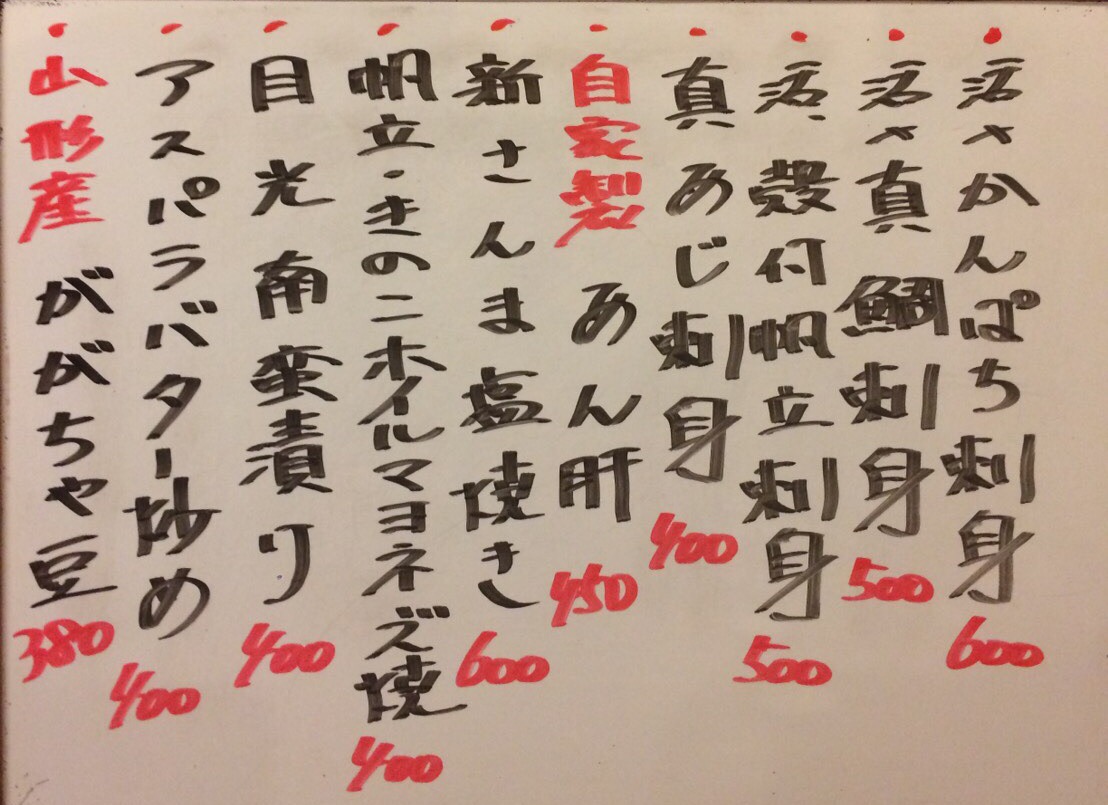 ・活〆かんぱち刺身 600
・活〆真鯛刺身 500
・活・殻付帆立刺身 500
・真あじ刺身 400
・自家製 あん肝 450
・新さんま塩焼き 600
・帆立・きのこホイルマヨネズ焼 400
・目光南蛮漬り 400
・アスパラバター炒め 400
・山形産 ががちゃ豆 380